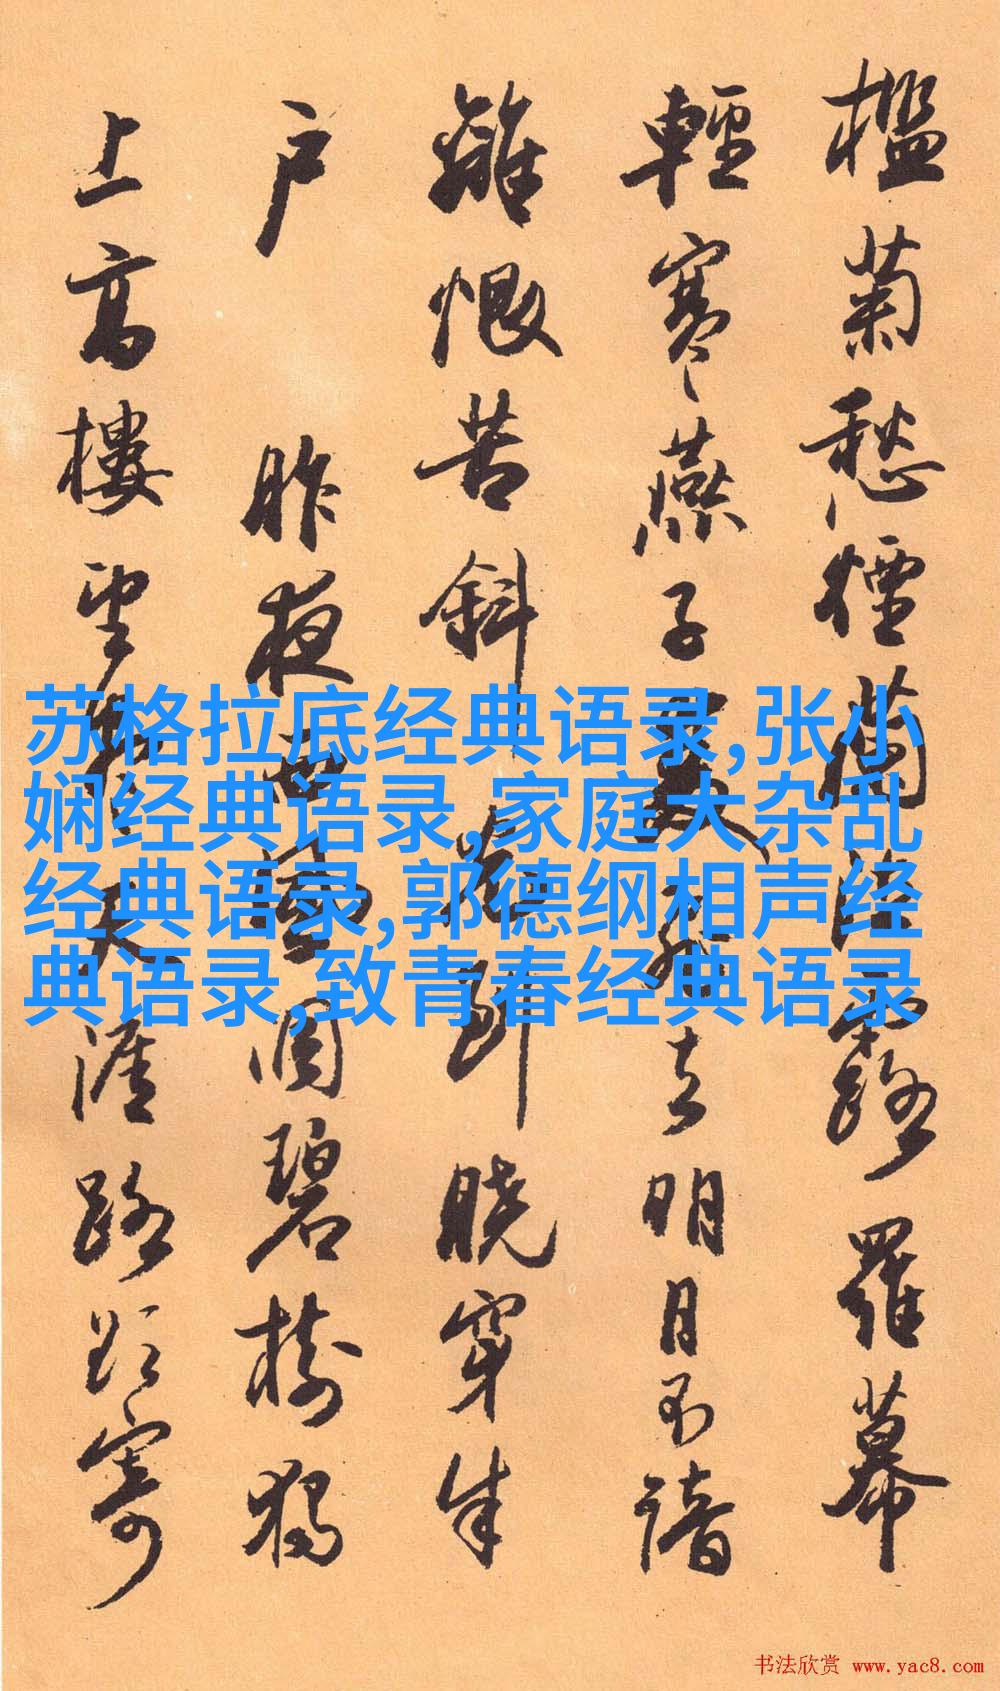 檻菊愁煙蘭泣露羅幕
輕寒燕子雙飛去明月不諳
離恨苦斜光到曉穿朱
户 昨夜西風凋碧樹獨
上高樓望盡天涯路欲寄
苏格拉底经典语录,张小
娴经典语录,家庭大杂乱
经典语录,郭德纲相声经
典语录,致青春经典语录
书法欣赏 www.yac8.com